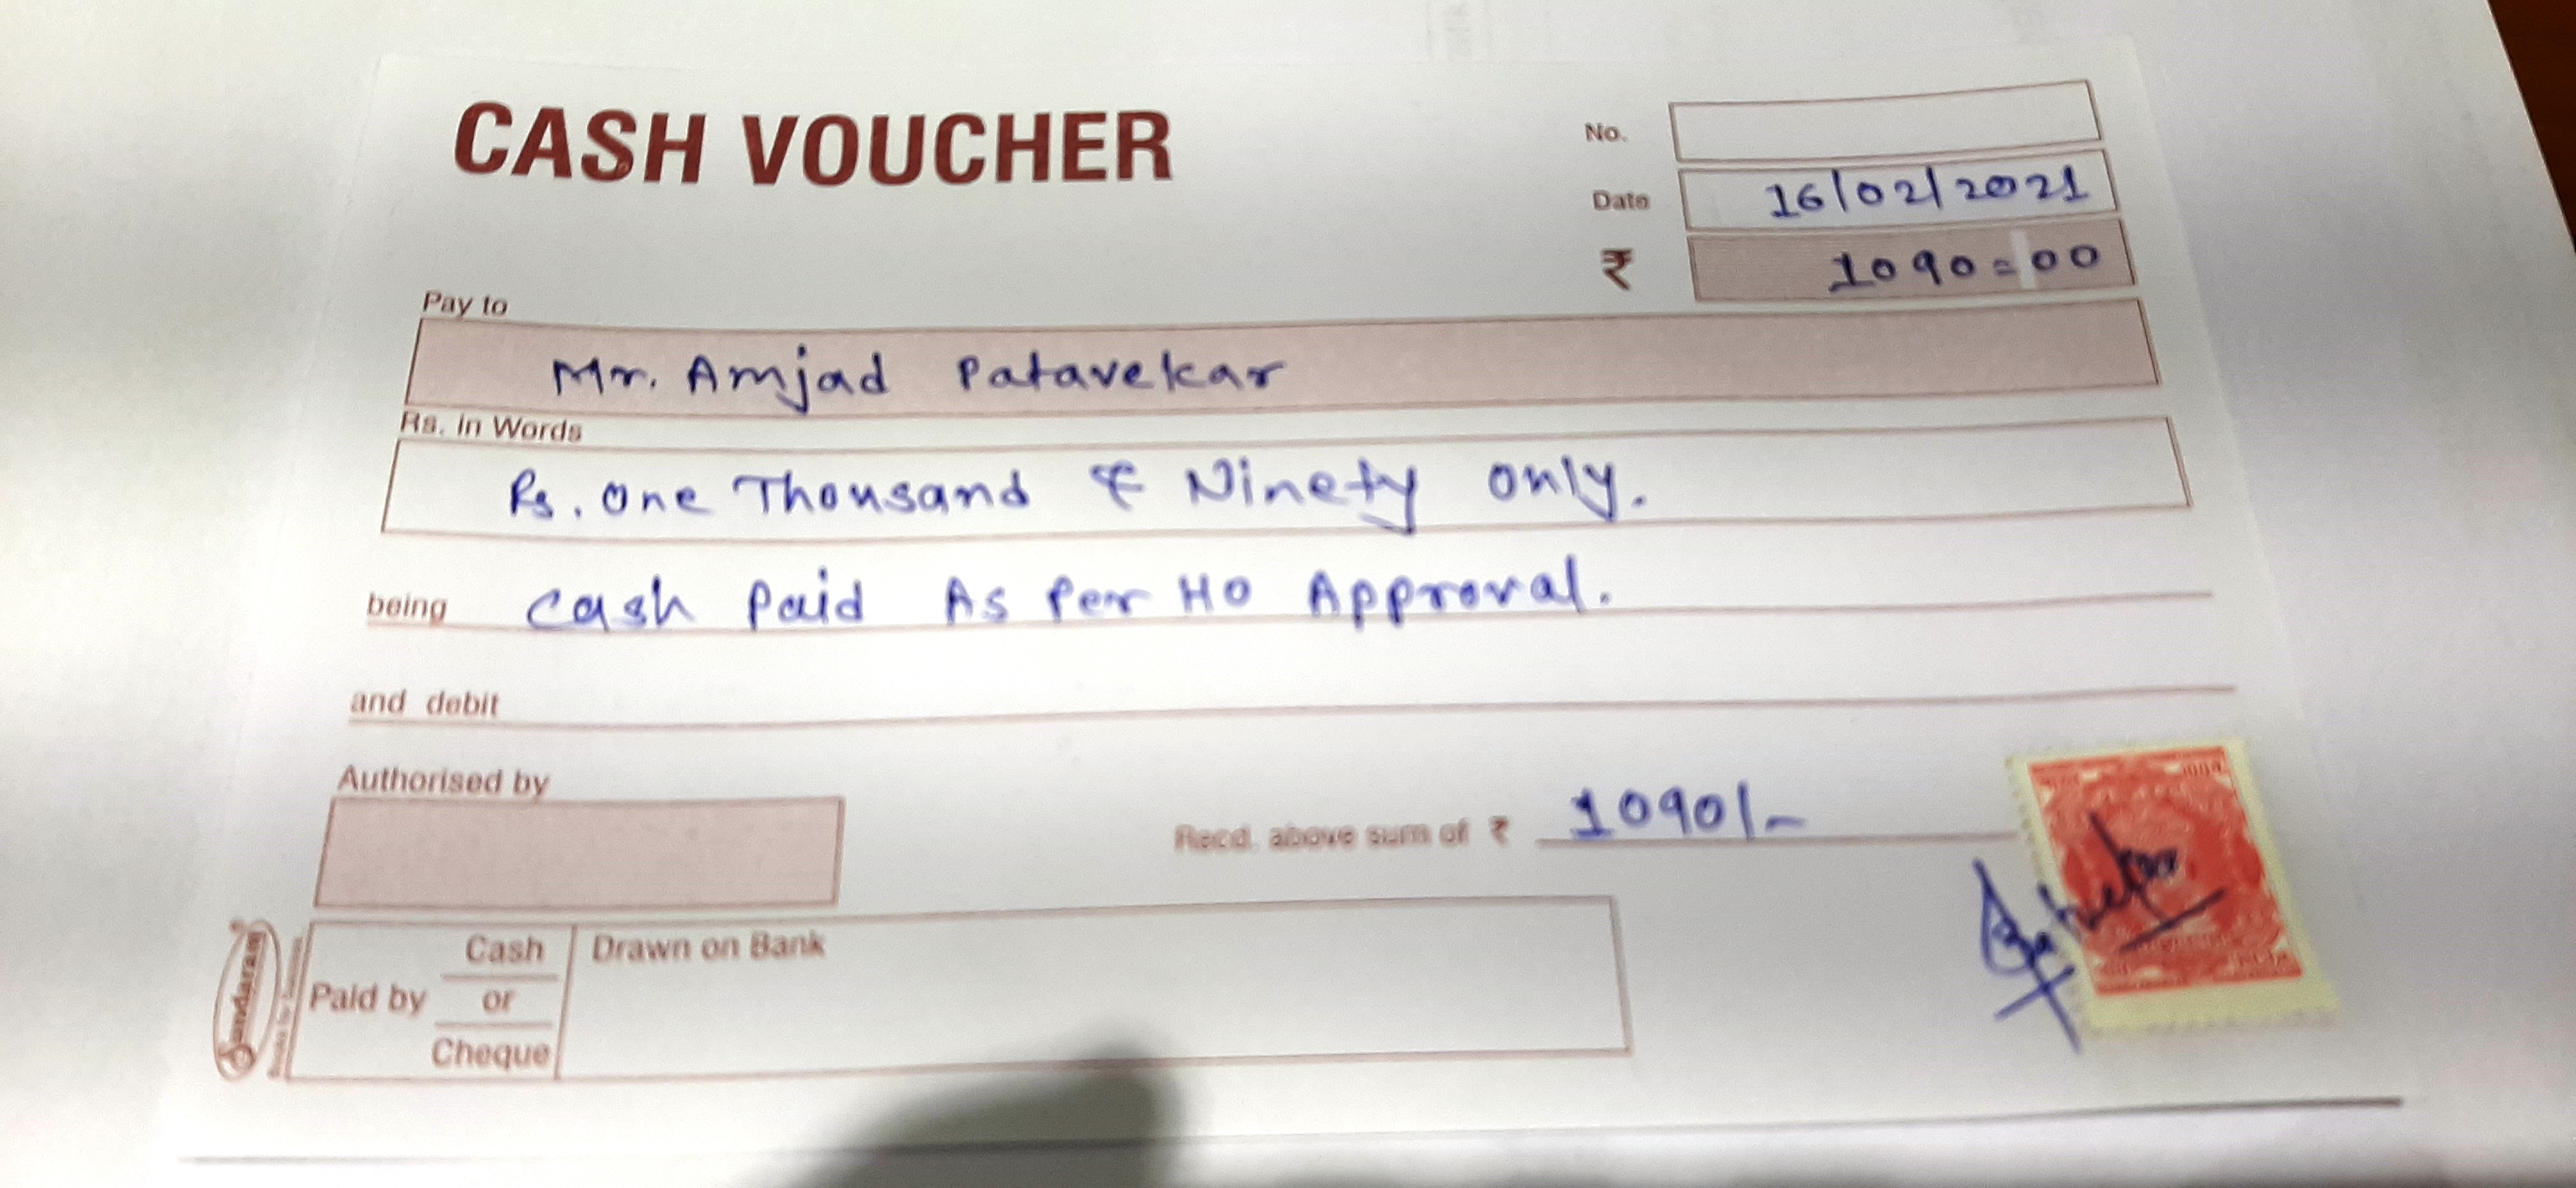 CASH VOUCHER
No.
Date 16/02/2021
₹ 1090=00
Pay to
Mr. Amjad Patavekar
Rs. in Words
Rs. One Thousand & Ninety only.
being Cash Paid As Per HO Approval.
and debit
Authorised by
Recd. above sum of ₹ 1090/-
Sundaram
Paid by Cash or Cheque
Drawn on Bank